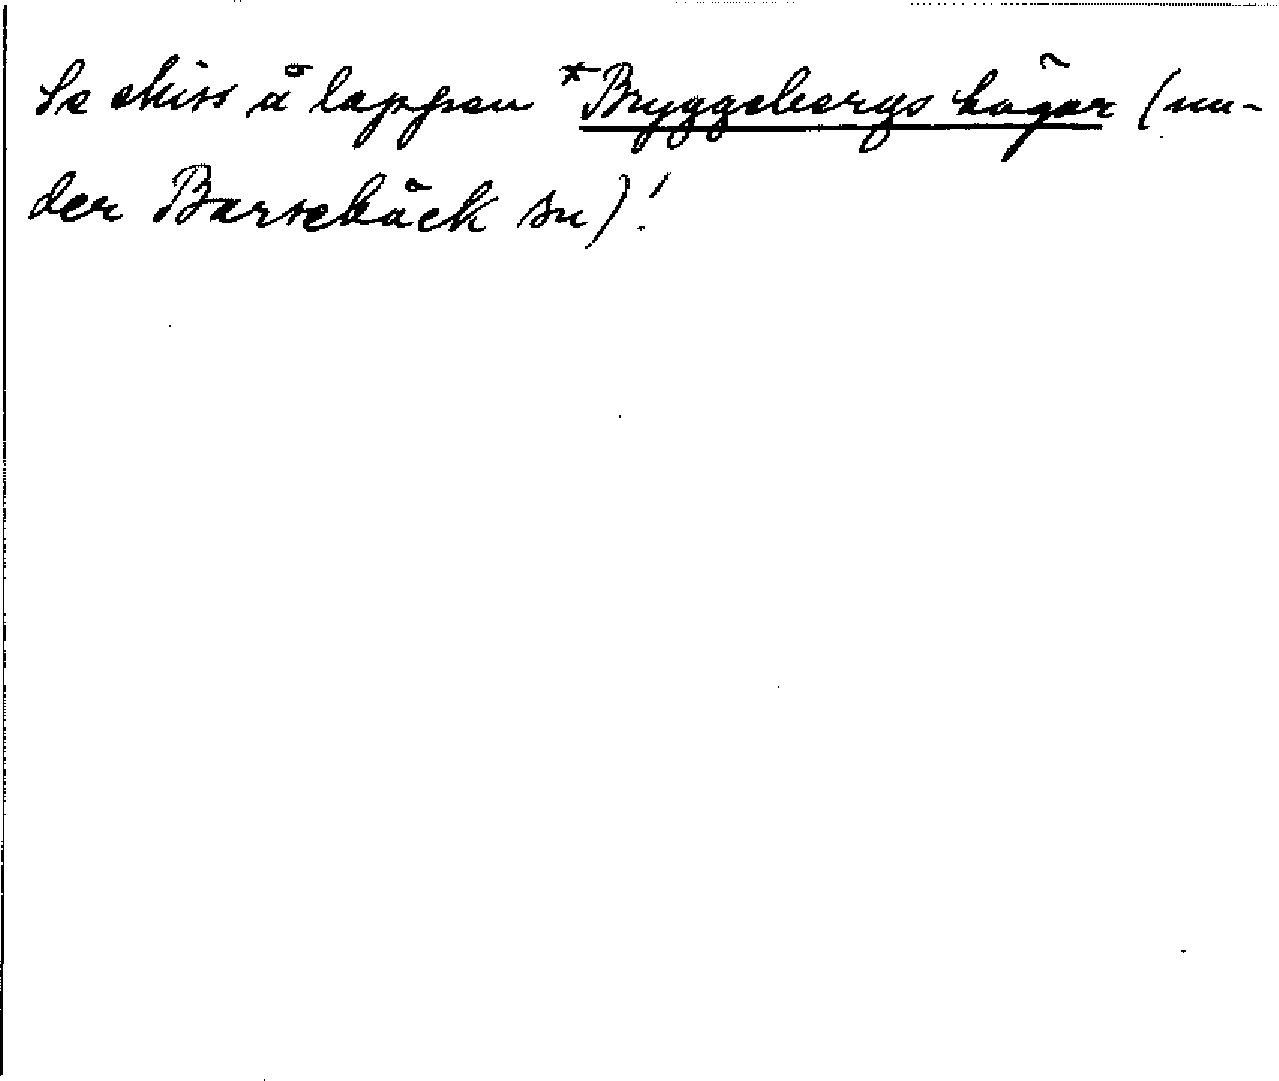 Se skiss å lappen *Bryggebergs högar (un-
der Barsebäck sn)!